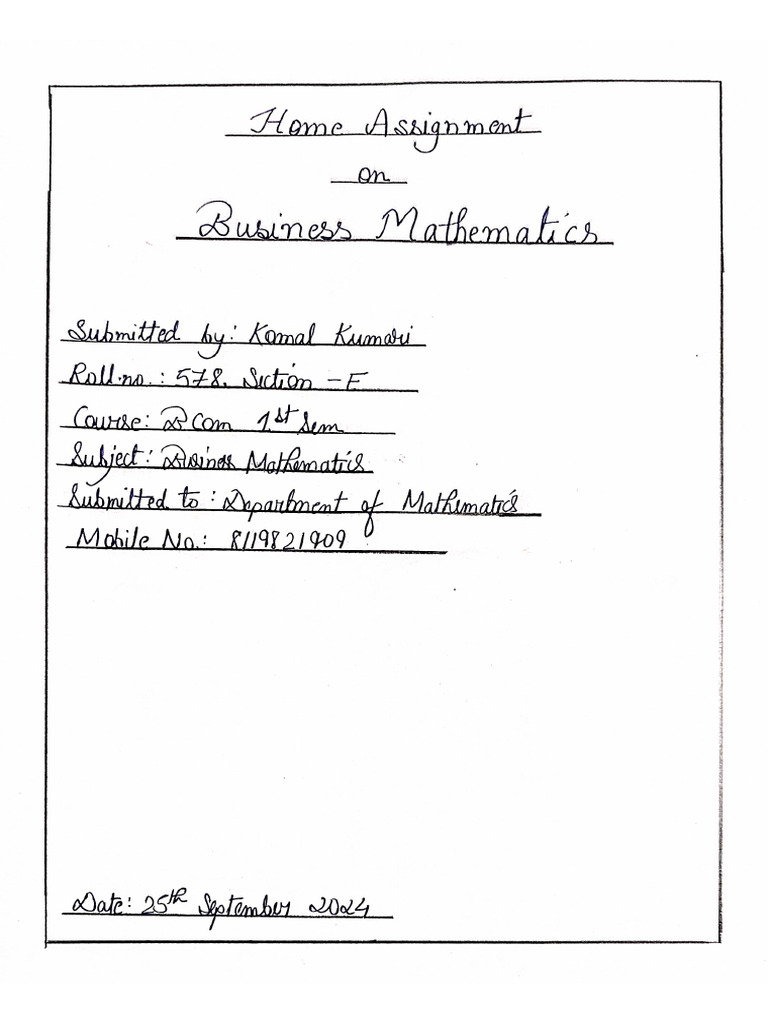 Home Assignment
on
Business Mathematics
Submitted by: Komal Kumari
Roll.no.: 578. Section - E
Course: B Com 1st Sem
Subject: Businss Mathematics
Submitted to: Department of Mathematics
Mobile No.: 8119821909
Date: 25th September 2024